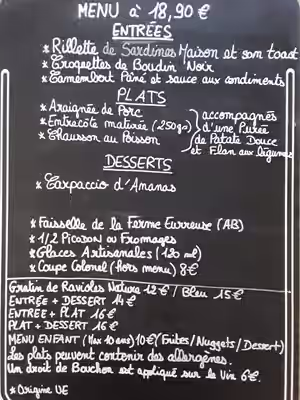 MENU à 18,90 €
ENTRÉES
* Rillette de Sardines Maison et son toast
* Croquettes de Boudin Noir
* Camembert Pané et sauce aux condiments
PLATS
* Araignée de Porc
* Entrecôte maturée (250grs)
* Chausson au Poisson
accompagnés
d'une Purée
de Patate Douce
et Flan aux légumes
DESSERTS
* Carpaccio d'Ananas
* Faisselle de la Ferme Eurreuse (AB)
* 1/2 Picodon ou Fromages
* Glaces Artisanales (120 ml)
* Coupe Colonel (Hors menu) 8€
Gratin de Ravioles Nature 12€ / Bleu 15€
ENTRÉE + DESSERT 14€
ENTREE + PLAT 16€
PLAT + DESSERT 16€
MENU ENFANT (Max 10 ans) 10€ (Frites/Nuggets/Dessert)
Les plats peuvent contenir des allergènes.
Un droit de Bouchon est appliqué sur le Vin 6€.
* Origine UE